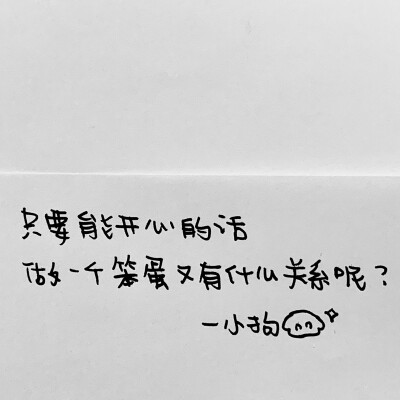 只要能开心的话
做一个笨蛋又有什么关系呢？
一小狗